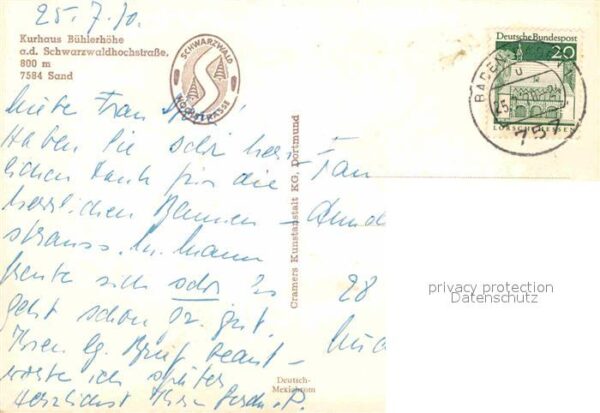 25.7.70.
Kurhaus Bühlerhöhe
a.d. Schwarzwaldhochstraße.
800 m
7584 Sand
SCHWARZWALD
HOCHSTRASSE
Deutsche Bundespost
20
LORSCH/HESSEN
BADEN
25.
75
Liebe Frau
Haben Sie schön herz-
lichen Dank für die
herrlichen Blumen-
strauss. M. Mann
freute sich sehr. Es
geht schon gz. gut.
Ihren lg. Brief beant-
worte ich später
Herzlichst Ihre
Cramers Kunstanstalt KG. Dortmund
Fan
28
privacy protection
Datenschutz
Deutsch-
Mexichrom